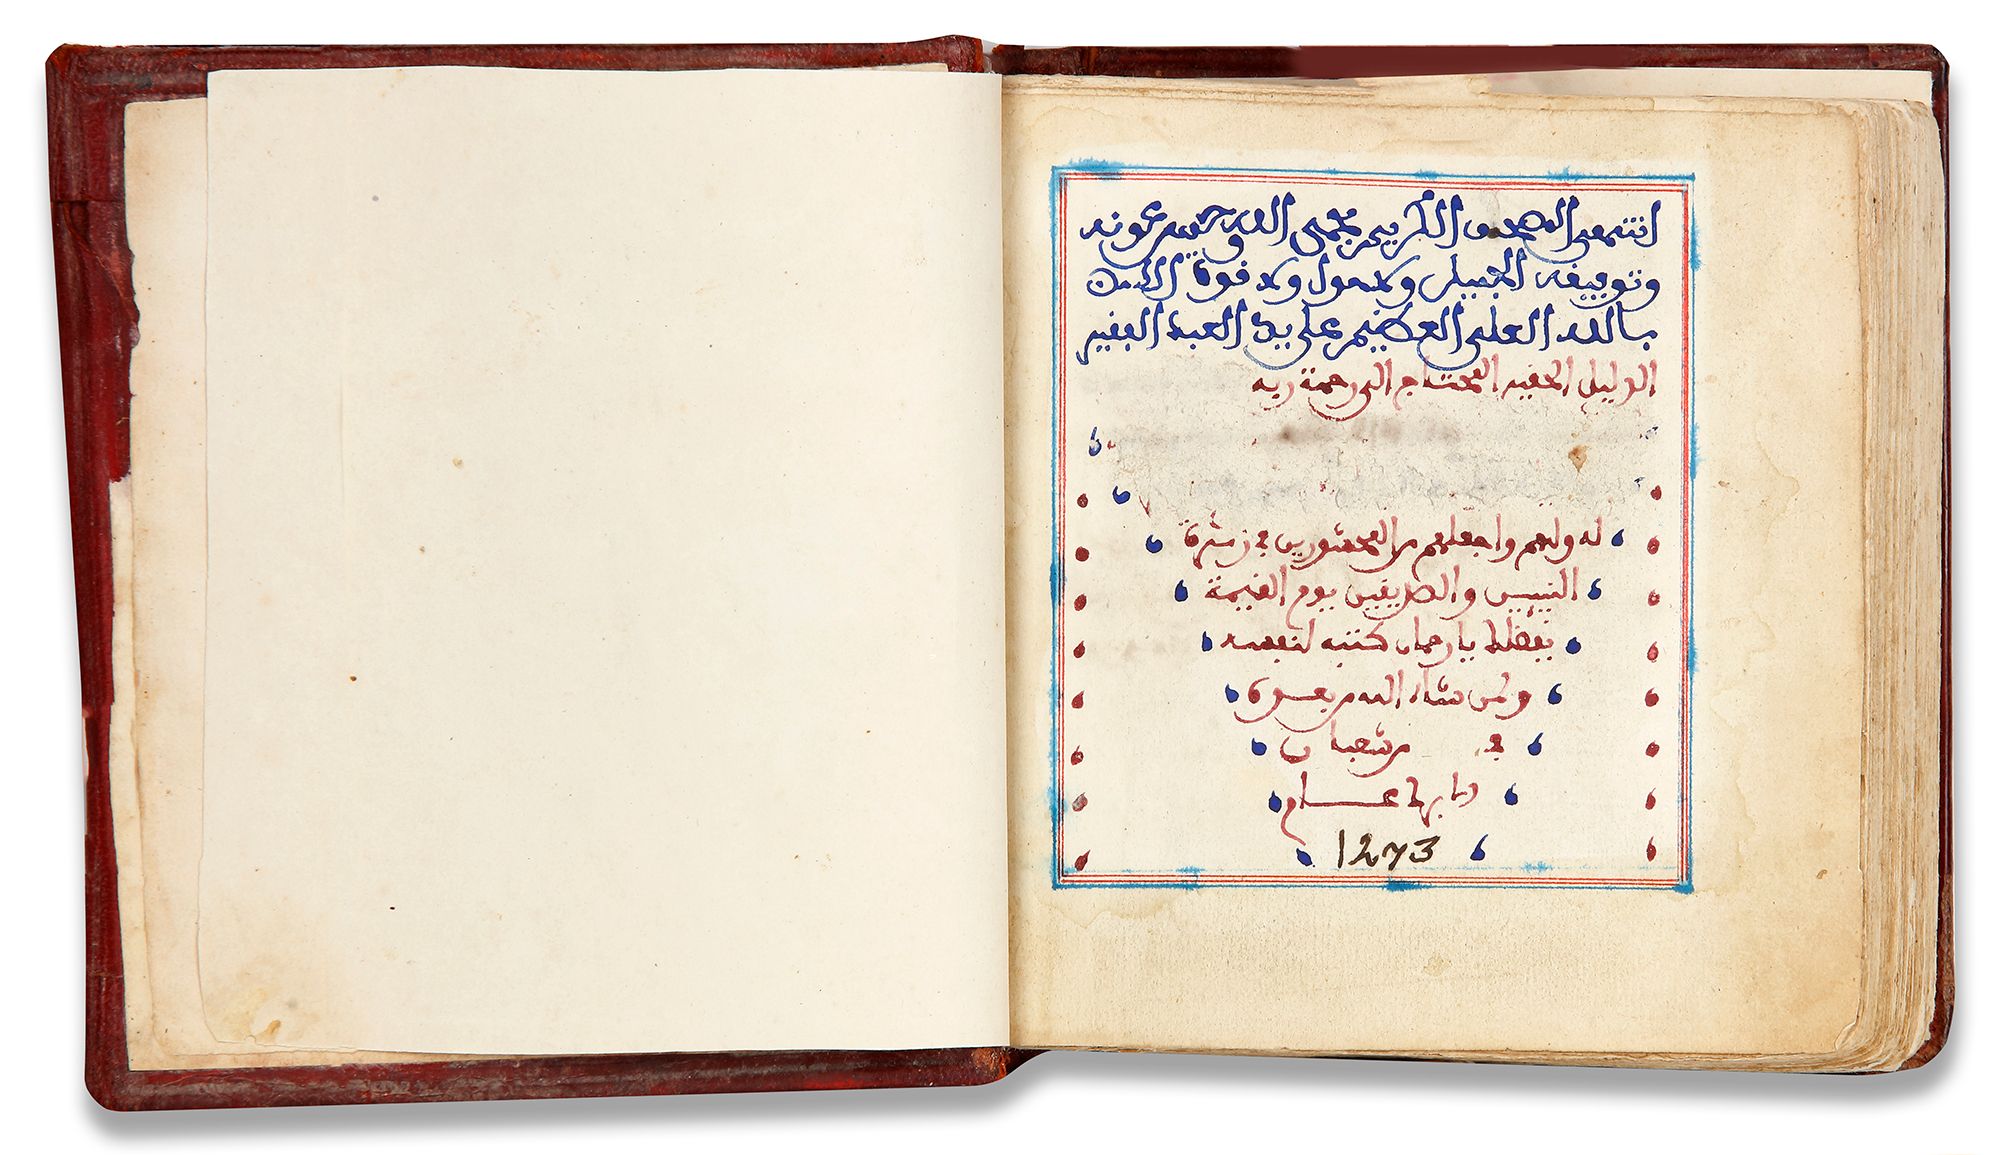 انتهى المصحف الكريم بحمد الله وحسن عونه
وتوفيقه الجميل ولا حول ولا قوة الا
بالله العلي العظيم على يد العبد الفقير
الذليل الحقير المحتاج الى رحمة ربه
له ولهم واجعلهم من المحشورين في زمرة
النبيين والصديقين يوم القيمة
بفضلك يا رحمان كتبه لنفسه
ولمن شاء الله من بعده
في من شعبان
عام
1273